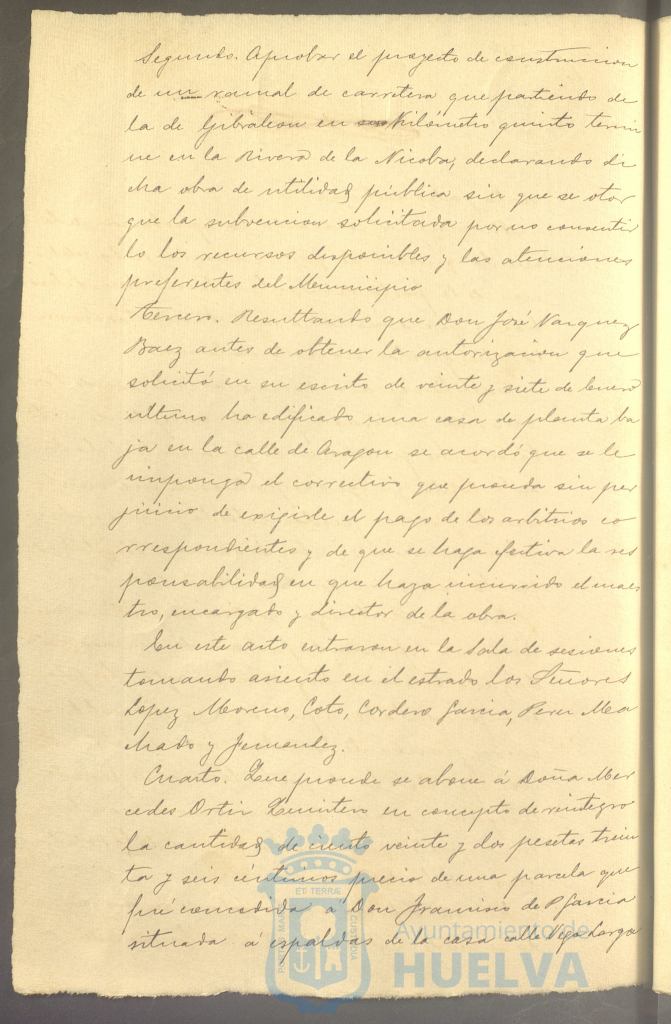 Segundo. Aprobar el proyecto de construccion
de un ramal de carretera que partiendo de
la de Gibraleon en su Kilómetro quinto termi
ne en la Rivera de la Nicoba, declarando di
cha obra de utilidad pública sin que se otor
gue la subvencion solicitada por no consentir
lo los recursos disponibles y las atenciones
preferentes del Municipio
Tercero. Resultando que Don José Vazquez
Baez antes de obtener la autorizacion que
solicitó en su escrito de veinte y siete de Enero
ultimo ha edificado una casa de planta ba
ja en la calle de Aragon se acordó que se le
imponga el correctivo que proceda sin per
juicio de exigirle el pago de los arbitrios co
rrespondientes y de que se haga efectiva la res
ponsabilidad en que haya incurrido el maes
tro, encargado y director de la obra.
En este acto entraron en la Sala de sesiones
tomando asiento en el estrado los Señores
Lopez Moreno, Coto, Cordero Garcia, Perez Ma
chado y Jemandez.
Cuarto. Que procede se abone á Doña Mer
cedes Ortiz Quintero en concepto de reintegro
la cantidad de ciento veinte y dos pesetas trein
ta y seis céntimos precio de una parcela que
fué concedida á Don Francisco de P. Garcia
situada á espaldas de la casa calle Vega Larga
ET TERRÆ
PORTUS MARIS
CUSTODIA
Ayuntamiento de
HUELVA